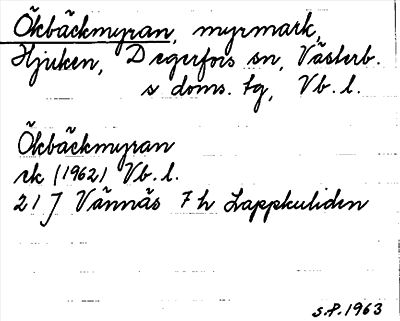 Ökbäckmyran, myrmark,
Hjuken, Degerfors sn, Västerb.
s doms. tg, Vb. l.
Ökbäckmyran
ek (1962) Vb. l.
21 J Vännäs 7 h Lappkuliden
S.P. 1963